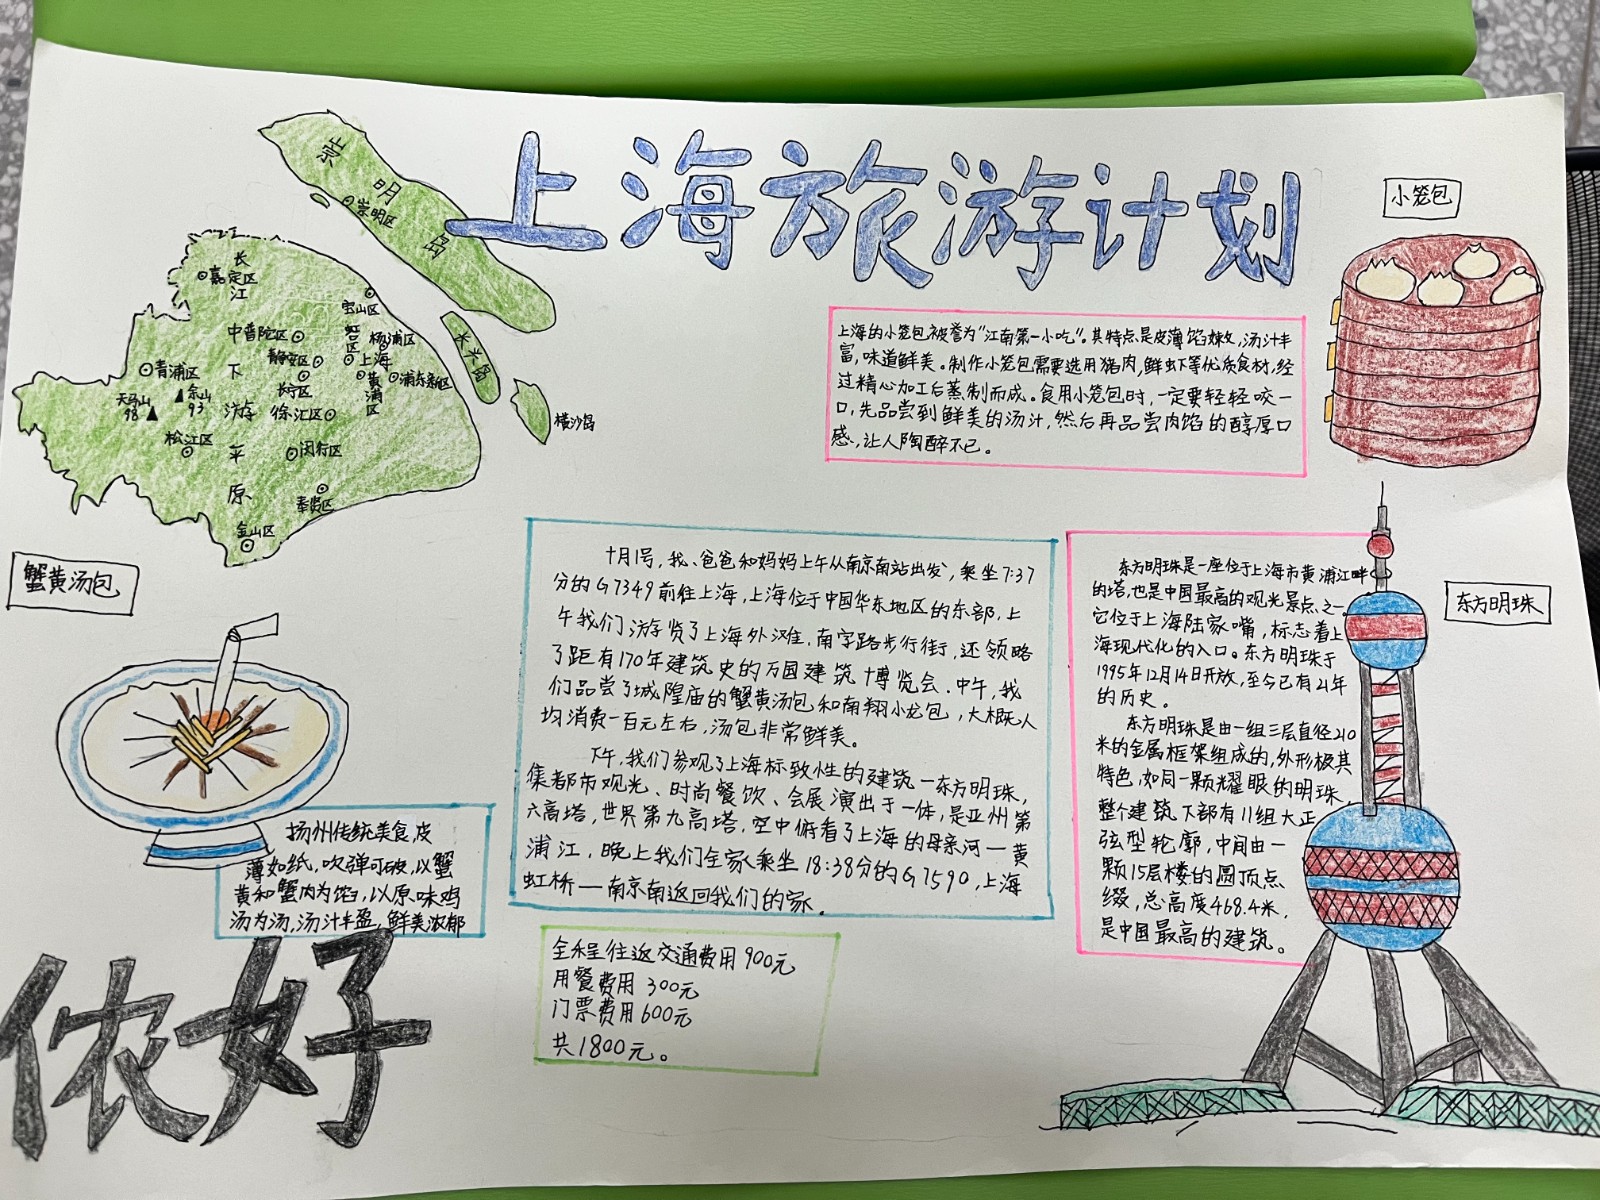 上海旅游计划
崇明岛
崇明区
长江
嘉定区
宝山区
中普陀区
虹口区
杨浦区
静安区
上海
青浦区
下
长宁区
黄浦区
浦东新区
天马山
98
佘山
93
游
徐汇区
松江区
平
闵行区
原
奉贤区
金山区
长兴岛
横沙岛
小笼包
上海的小笼包被誉为“江南第一小吃”。其特点是皮薄馅嫩,汤汁丰
富,味道鲜美。制作小笼包需要选用猪肉,鲜虾等优质食材,经
过精心加工后蒸制而成。食用小笼包时,一定要轻轻咬一
口,先品尝到鲜美的汤汁,然后再品尝肉馅的醇厚口
感,让人陶醉不已。
蟹黄汤包
扬州传统美食,皮
薄如纸,吹弹可破,以蟹
黄和蟹肉为馅,以原味鸡
汤为汤,汤汁丰盈,鲜美浓郁
十月1号,我、爸爸和妈妈上午从南京南站出发,乘坐7:37
分的G7349前往上海,上海位于中国华东地区的东部,上
午我们游览了上海外滩.南京路步行街,还领略
了距有170年建筑史的万国建筑博览会.中午,我
们品尝了城隍庙的蟹黄汤包和南翔小龙包,大概人
均消费一百元左右,汤包非常鲜美。
下午,我们参观了上海标致性的建筑—东方明珠,
集都市观光、时尚餐饮、会展演出于一体,是亚州第
六高塔,世界第九高塔,空中俯看了上海的母亲河—黄
浦江,晚上我们全家乘坐18:38分的G7590,上海
虹桥—南京南返回我们的家.
东方明珠
东方明珠是一座位于上海市黄浦江畔
的塔,也是中国最高的观光景点之一。
它位于上海陆家嘴,标志着上
海现代化的入口。东方明珠于
1995年12月14日开放,至今已有21年
的历史。
东方明珠是由一组三层直径210
米的金属框架组成的,外形极其
特色,如同一颗耀眼的明珠,
整个建筑下部有11组大正
弦型轮廓,中间由一
颗15层楼的圆顶点
缀,总高度468.4米,
是中国最高的建筑。
全程往返交通费用900元
用餐费用 300元
门票费用600元
共1800元。
侬好